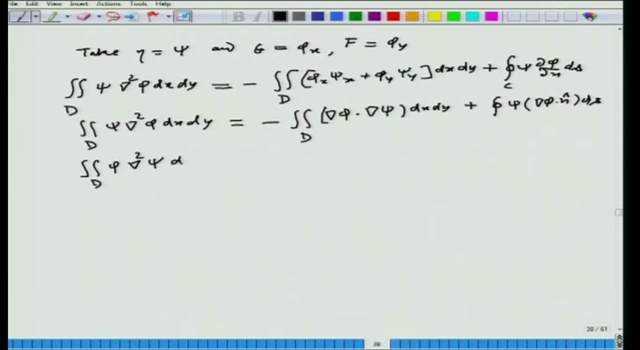 File Edit View Insert Actions Tools Help
Take η = Ψ and G = φₓ, F = φᵧ
∬_D Ψ ∇²φ dx dy = - ∬_D [φₓ Ψₓ + φᵧ Ψᵧ] dx dy + ∮_C Ψ ∂φ/∂n ds
∬_D Ψ ∇²φ dx dy = - ∬_D (∇φ · ∇Ψ) dx dy + ∮ Ψ (∇φ · n̂) ds
∬_D φ ∇² Ψ d
38